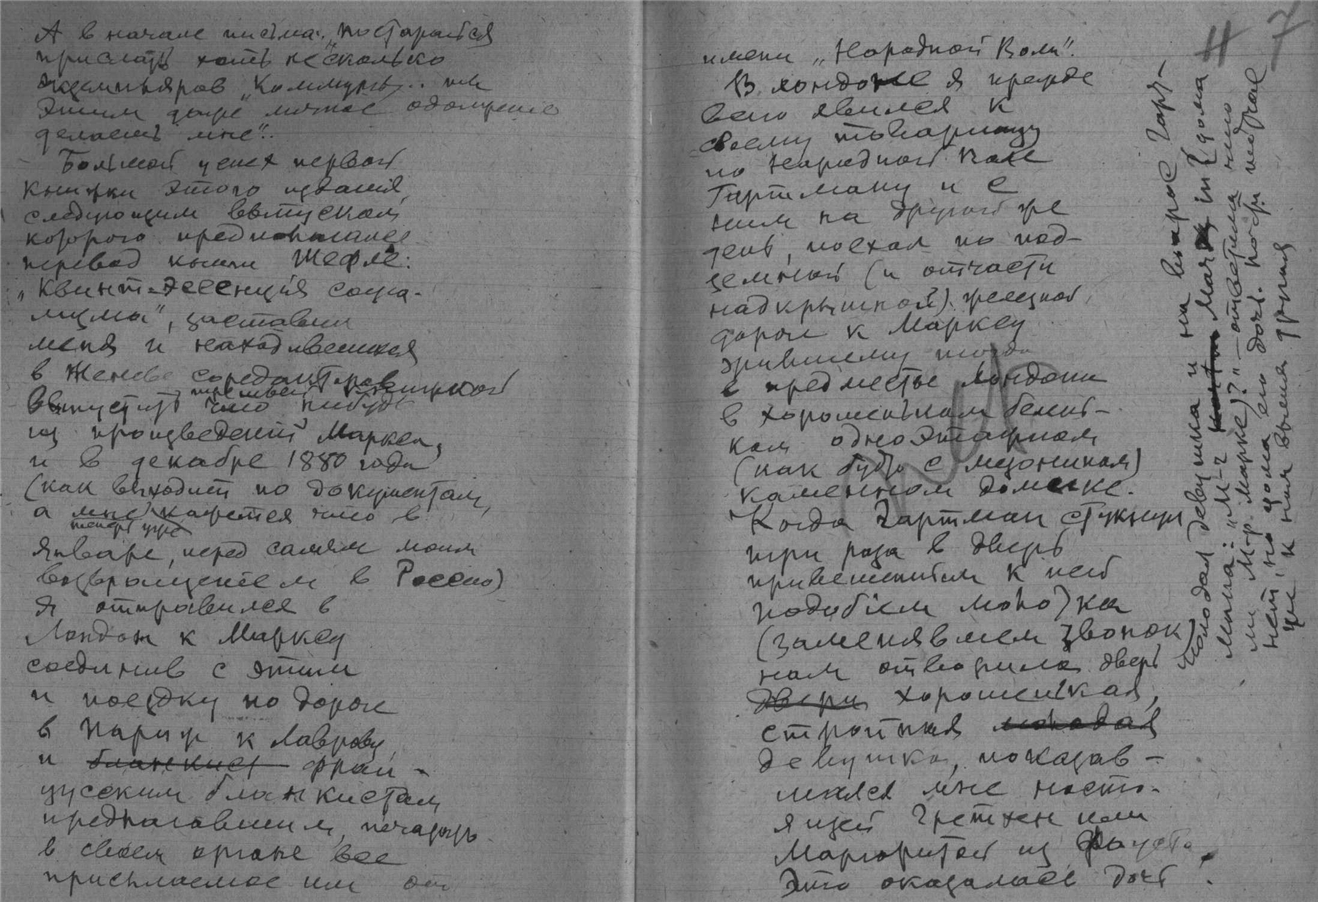 А в начале письма: „постарайся
прислать хоть несколько
экземпляров „Коммуны"..
Этим даже личное одолжение
делаешь мне".
Большой успех первой
книжки этого издания
следующим выпуском
которого предполагался
перевод книги Шефле:
„Квинт-эссенция социа-
лизма", заставил
меня и находившихся
в Женеве соредакторов
выпустить что нибудь
из произведений Маркса,
и в декабре 1880 года
(как выходит по документам,
а мне кажется что в
теперь уже
январе, перед самым моим
возвращением в Россию)
я отправился в
Лондон к Марксу
соединив с этим
и поездку по дороге
в Париж к Лаврову
и бланкист фран-
цузским бланкистам
предлагавшим печатать
в своем органе все
присылаемое им от
7
имени „Народной Воли".
В Лондоне я прежде
всего явился к
своему товарищу
по Народной Воле
Гартману и с
ним на другой же
день, поехал по под-
земной (и отчасти
надкрышной) железной
дороге к Марксу
жившему тогда
в предместье Лондона
в хорошеньком белень-
ком одноэтажном
(как будто с мезонином)
каменном домике.
Когда Гартман стукнул
три раза в дверь
привешенным к ней
подобием молотка
(заменявшем звонок)
нам отворила дверь
двери хорошенькая,
стройная молодая
девушка, показав-
шаяся мне насто-
ящей Гретхен или
Маргаритой из Фауста.
Это оказалась дочь
молодая девушка и на вопрос Гарт-
мана: "М-г Маркс in? (дома
ли М-р Маркс)?" — ответила что
нет, но дома его дочь.
же к нам вышла другая